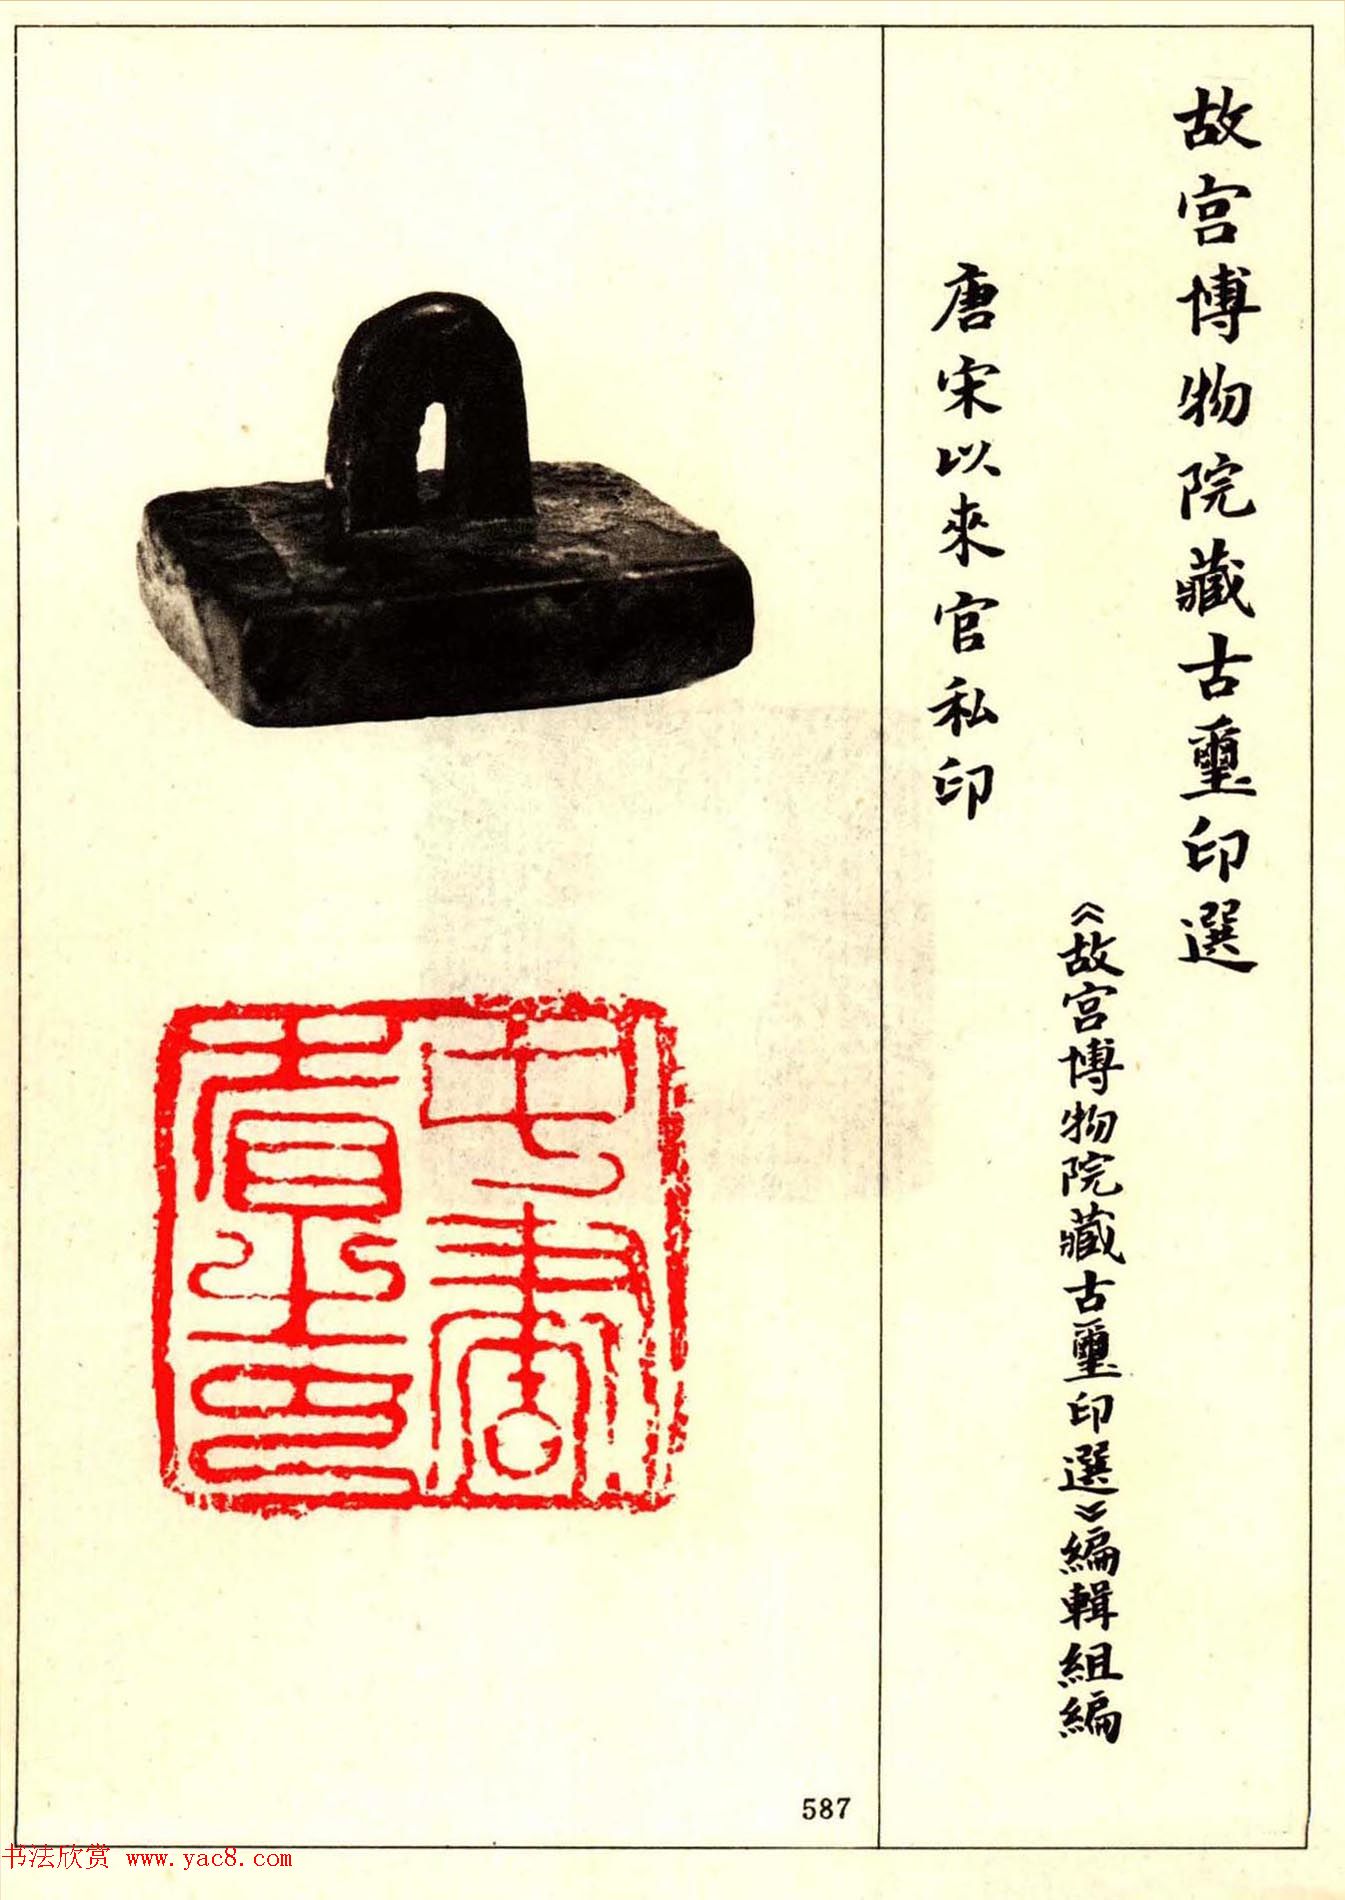 故宮博物院藏古璽印選
《故宮博物院藏古璽印選》編輯組編
唐宋以來官私印
中書省之印
587
书法欣赏 www.yac8.com